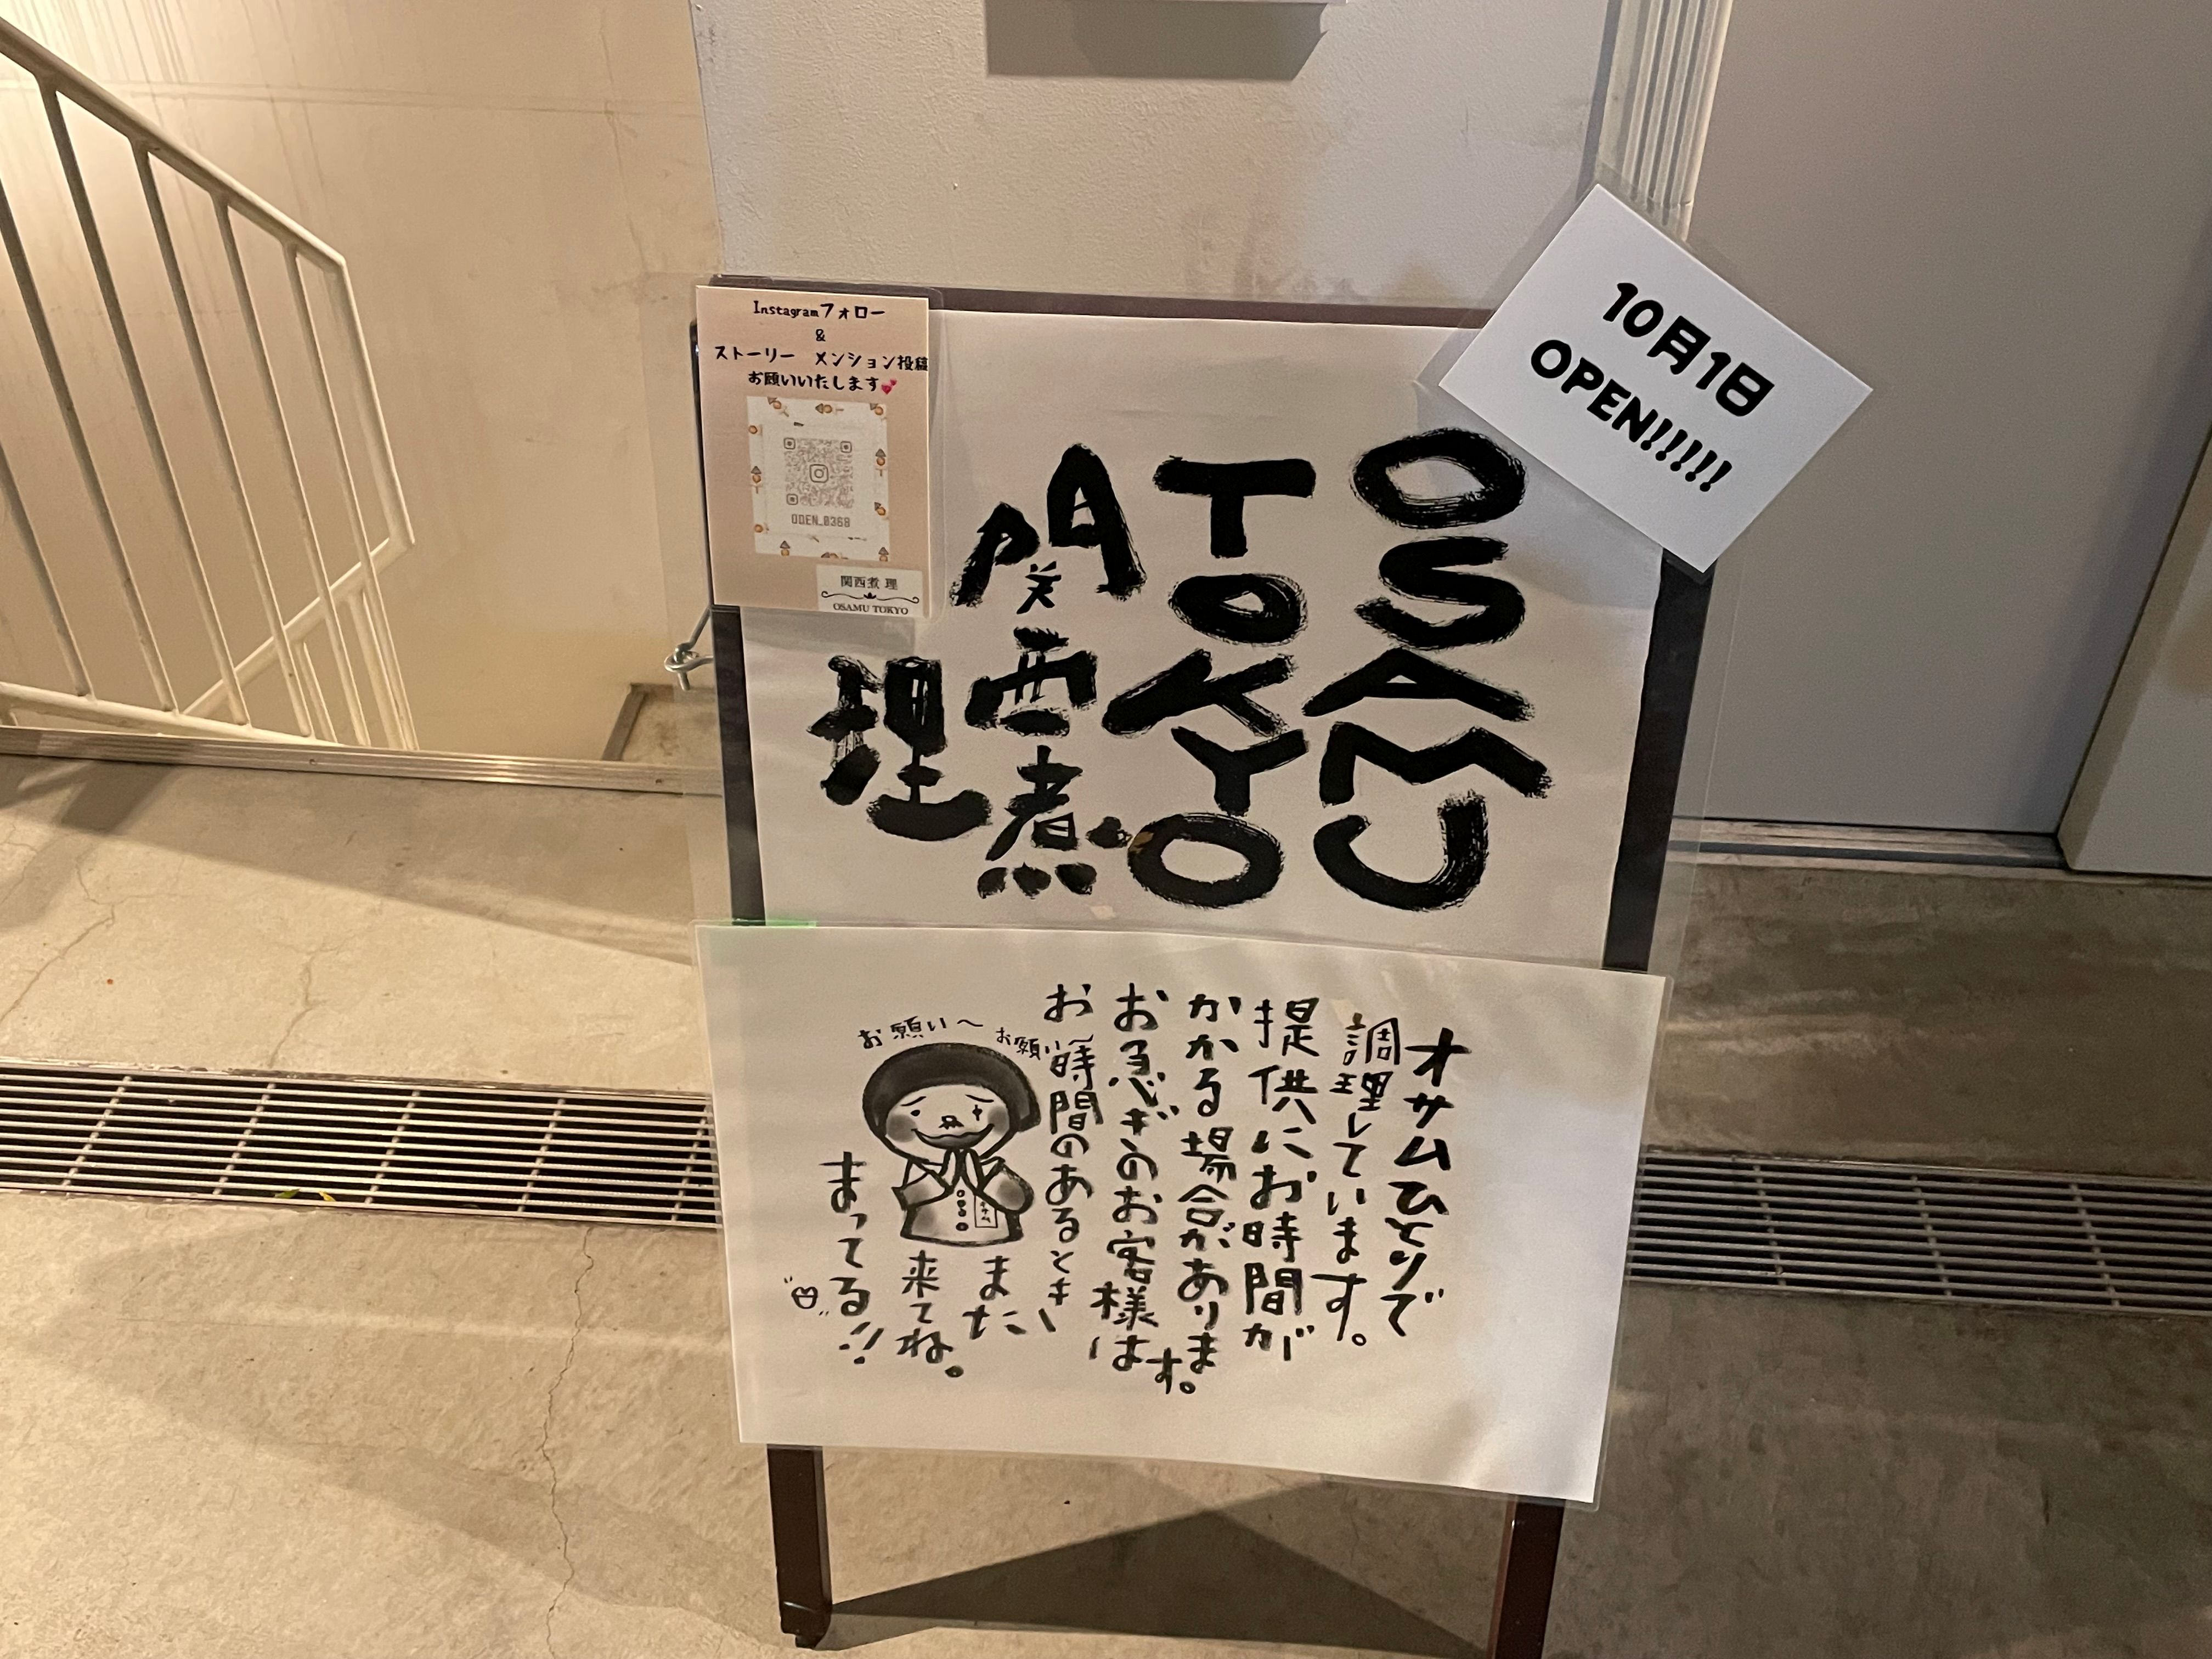 Instagramフォロー
&
ストーリー　メンション投稿
お願いいたします💕
ODEN_0368
関西煮 理
OSAMU TOKYO
10月1日
OPEN!!!!!
OSAMU
TOKYO
関西煮
理
オサムひとりで
調理しています。
提供にお時間が
かかる場合があります。
お急ぎのお客様は
お時間のあるとき
また
来てね。
まってる!!
お願い〜
お願い〜
オサム